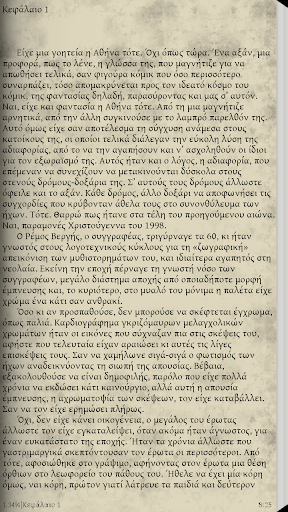 Κεφάλαιο 1
Είχε μια γοητεία η Αθήνα τότε. Όχι όπως τώρα. Ένα αξάν, μια
προφορά, πως το λένε, η γλώσσα της, που μαγνήτιζε για να
απωθήσει τελικά, σαν φιγούρα κόμικ που όσο περισσότερο
συναρπάζει, τόσο απομακρύνεται προς τον ιδεατό κόσμο του
κόμικ, της φαντασίας δηλαδή, παρασύροντας και μας σ' αυτόν.
Ναι, είχε και φαντασία η Αθήνα τότε. Από τη μια μαγνήτιζε
αρνητικά, από την άλλη συγκινούσε με το λαμπρό παρελθόν της.
Αυτό όμως είχε σαν αποτέλεσμα τη σύγχυση ανάμεσα στους
κατοίκους της, οι οποίοι τελικά διάλεγαν την εύκολη λύση της
αδιαφορίας, από το να την αγαπήσουν και ν' ασχοληθούν οι ίδιοι
για τον εξωραϊσμό της. Αυτός ήταν και ο λόγος, η αδιαφορία, που
επέμεναν να συνεχίζουν να μετακινούνται δύσκολα στους
στενούς δρόμους-δοξάρια της. Σ' αυτούς τους δρόμους άλλωστε
όφειλε και το αξάν. Κάθε δρόμος, άλλο δοξάρι να αποκρυφώσει τις
συγχορδίες που κρύβονταν άθελα τους στο συνονθύλευμα των
ήχων. Τότε. Θαρρώ πως ήτανε στα τέλη του προηγούμενου αιώνα.
Ναι, παραμονές Χριστούγεννα του 1998.
Ο Ρέμος Βεργής, ο συγγραφέας, τριγύρναγε τα 60, κι ήταν
γνωστός στους λογοτεχνικούς κύκλους για τη «ζωγραφική»
απεικόνιση των μυθιστορημάτων του, και ιδιαίτερα αγαπητός στη
νεολαία. Εκείνη την εποχή πέρναγε τη γνωστή νόσο των
συγγραφέων, μεγάλο διάστημα αποχής από οποιαδήποτε μορφή
έμπνευσης και, το κυριότερο, στο μυαλό του μόνιμα η παλέτα είχε
χρώμα ένα κάτι σαν ανθρακί.
Όσο κι αν προσπαθούσε, δεν μπορούσε να σκέφτεται έγχρωμα,
όπως παλιά. Καρδιογράφημα γκριζόμαυρων μελαγχολικών
χρωμάτων ήταν οι εικόνες που σύχναζαν πια στις σκέψεις του,
αφήστε που τελευταία είχαν αραιώσει κι αυτές τις λίγες
επισκέψεις τους. Σαν να χαμήλωνε σιγά-σιγά ο φωτισμός των
ήχων αναδεικνύοντας τη σιωπή της απουσίας. Βέβαια,
εξακολουθούσε να είναι δημοφιλής, παρόλο που είχε πολλά
χρόνια να εκδώσει κάτι καινούργιο, αλλά αυτή η απουσία
έμπνευσης, η αχρωματοψία των σκέψεων, τον είχε καταβάλλει.
Σαν να τον είχε ερημώσει πλήρως.
Όχι, δεν είχε κάνει οικογένεια, ο μεγάλος του έρωτας
άλλωστε τον είχε εγκαταλείψει, όταν ακόμα ήταν άγνωστος, για
έναν ευκατάστατο της εποχής. Ήταν τα χρόνια άλλωστε που
γαστριμαργικά σκεπτόντουσαν τον έρωτα οι περισσότεροι. Από
τότε, αφοσιώθηκε στο γράψιμο, αφήνοντας στον έρωτα μια θέση
όρθιου στο λεωφορείο του πάθους του. Ήθελε να έχει μία κόρη
όμως, ναι κόρη, πρώτον γιατί λάτρευε τα παιδιά και δεύτερον
Κεφάλαιο 1